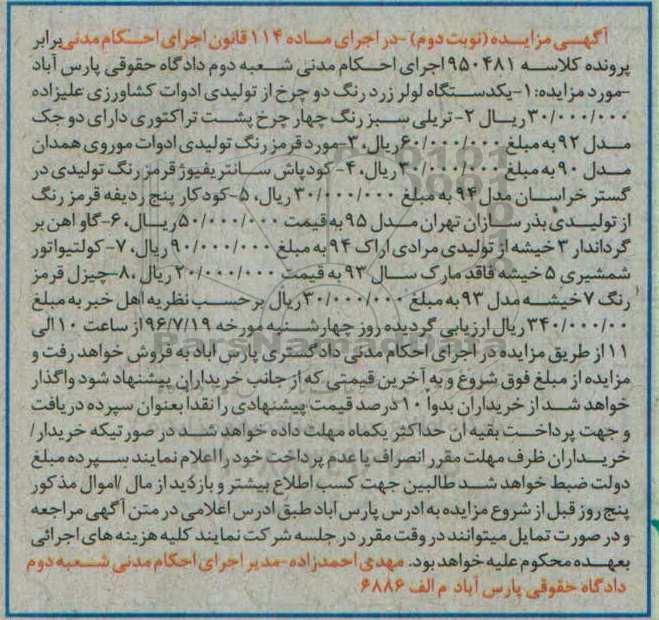 آگهی مزایده (نوبت دوم) -در اجرای ماده ۱۱۴ قانون اجرای احکام مدنی برابر
پرونده کلاسه ۹۵۰۴۸۱ اجرای احکام مدنی شعبه دوم دادگاه حقوقی پارس آباد
-مورد مزایده: ۱-یکدستگاه لولر زرد رنگ دو چرخ از تولیدی ادوات کشاورزی علیزاده
۳۰/۰۰۰/۰۰۰ ریال ۲- تریلی سبز رنگ چهار چرخ پشت تراکتوری دارای دو جک
مدل ۹۲ به مبلغ ۶۰/۰۰۰/۰۰۰ ریال، ۳-مورد قرمز رنگ تولیدی ادوات موروی همدان
مدل ۹۰ به مبلغ ۰/۰۰۰/۰۰۰ ریال، ۴-کودپاش سانتریفیوژ قرمز رنگ تولیدی در
گستر خراسان مدل ۹۴ به مبلغ ۳۰/۰۰۰/۰۰۰ ریال، ۵-کودکار پنج ردیفه قرمز رنگ
از تولیدی بذر سازان تهران مدل ۹۵ به قیمت ۵۰/۰۰۰/۰۰۰ ریال، ۶-گاو اهن بر
گرداندار ۳ خیشه از تولیدی مرادی اراک ۹۴ به مبلغ ۹۰/۰۰۰/۰۰۰ ریال، ۷-کولتیواتور
شمشیری ۵ خیشه فاقد مارک سال ۹۳ به قیمت ۲۰/۰۰۰/۰۰۰ ریال، ۸-چیزل قرمز
رنگ ۷ خیشه مدل ۹۳ به مبلغ ۳۰/۰۰۰/۰۰۰ ریال بر حسب نظریه اهل خبر به مبلغ
۳۴۰/۰۰۰/۰۰ ریال ارزیابی گردیده روز چهارشنبه مورخه ۹۶/۷/۱۹ از ساعت ۱۰ الی
۱۱ از طریق مزایده در اجرای احکام مدنی دادگستری پارس اباد به فروش خواهد رفت و
مزایده از مبلغ فوق شروع و به آخرین قیمتی که از جانب خریداران پیشنهاد شود واگذار
خواهد شد از خریداران بدوا ۱۰ درصد قیمت پیشنهادی را نقدا بعنوان سپرده دریافت
و جهت پرداخت بقیه ان حداکثر یکماه مهلت داده خواهد شد در صورتیکه خریدار/
خریداران ظرف مهلت مقرر انصراف یا عدم پرداخت خود را اعلام نمایند سپرده مبلغ
دولت ضبط خواهد شد طالبین جهت کسب اطلاع بیشتر و بازدید از مال /اموال مذکور
پنج روز قبل از شروع مزایده به ادرس پارس آباد طبق ادرس اعلامی در متن آگهی مراجعه
و در صورت تمایل میتوانند در وقت مقرر در جلسه شرکت نمایند کلیه هزینه های اجرائی
بعهده محکوم علیه خواهد بود. مهدی احمدزاده -مدیر اجرای احکام مدنی شعبه دوم
دادگاه حقوقی پارس آباد م الف ۶۸۸۶
ParsNamadData